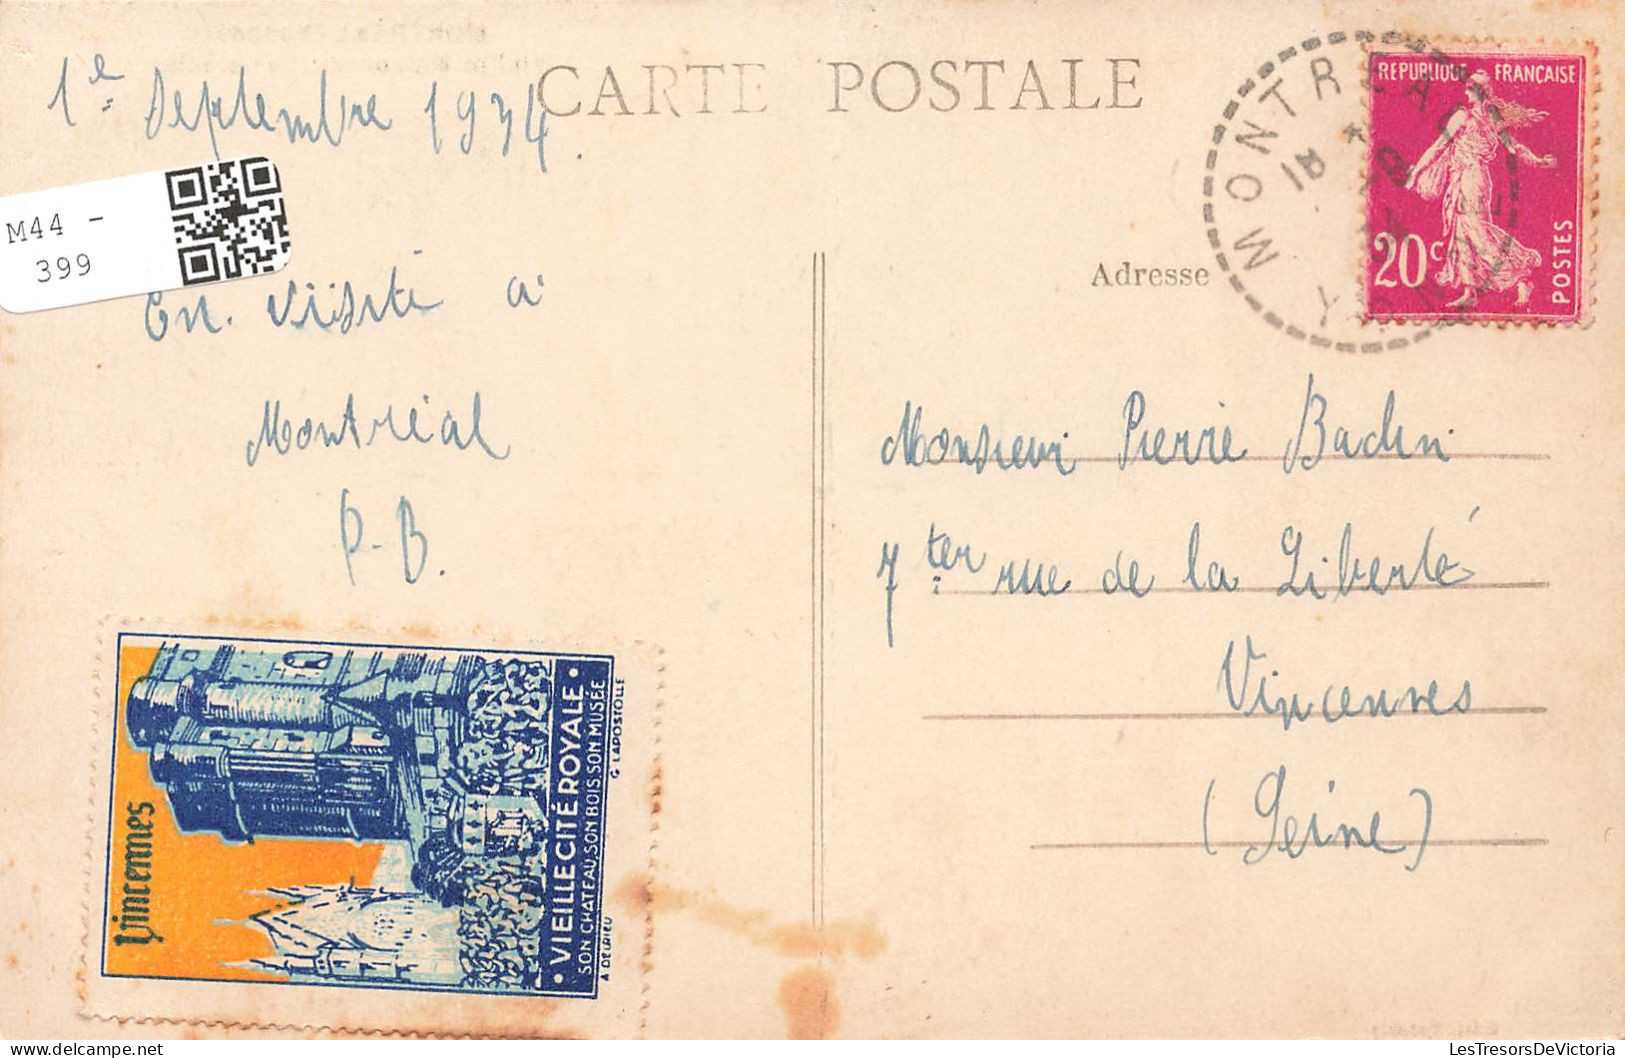 CARTE POSTALE
1e Septembre 1934.
M44 -
399
En visite a
Montréal
P-B.
Vincennes
• VIEILLE CITÉ ROYALE •
SON CHATEAU, SON BOIS, SON MUSÉE
A DELRIEU
G LAPOSTOLLE
REPUBLIQUE FRANÇAISE
20c
POSTES
MONTREAL
18
YONNE
Adresse
Monsieur Pierre Badin
7 ter rue de la Liberté
Vincennes
(Seine)
LesTresorsDeVictoria
www.delcampe.net